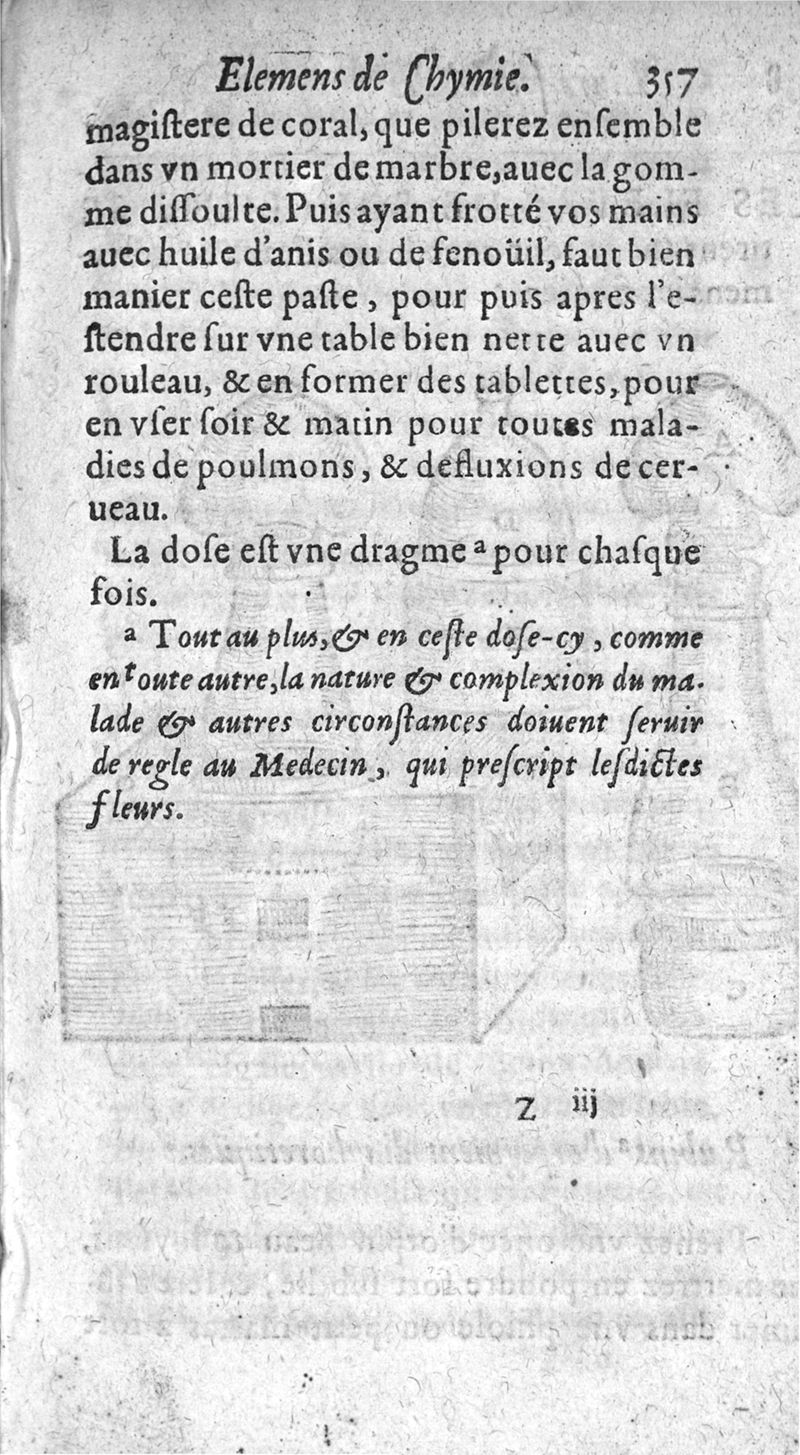 Elemens de Chymie. 357
magiſtere de coral, que pilerez enſemble
dans vn mortier de marbre, auec la gom-
me diſſoulte. Puis ayant frotté vos mains
auec huile d'anis ou de fenoüil, faut bien
manier ceſte paſte, pour puis apres l'e-
ſtendre ſur vne table bien nette auec vn
rouleau, & en former des tablettes, pour
en vſer ſoir & matin pour toutes mala-
dies de poulmons, & defluxions de cer-
ueau.
La doſe eſt vne dragme ª pour chaſque
fois.
ª Tout au plus, & en ceſte doſe-cy, comme
en toute autre, la nature & complexion du ma-
lade & autres circonſtances doiuent ſeruir
de regle au Medecin, qui preſcript leſdictes
fleurs.
Z iij